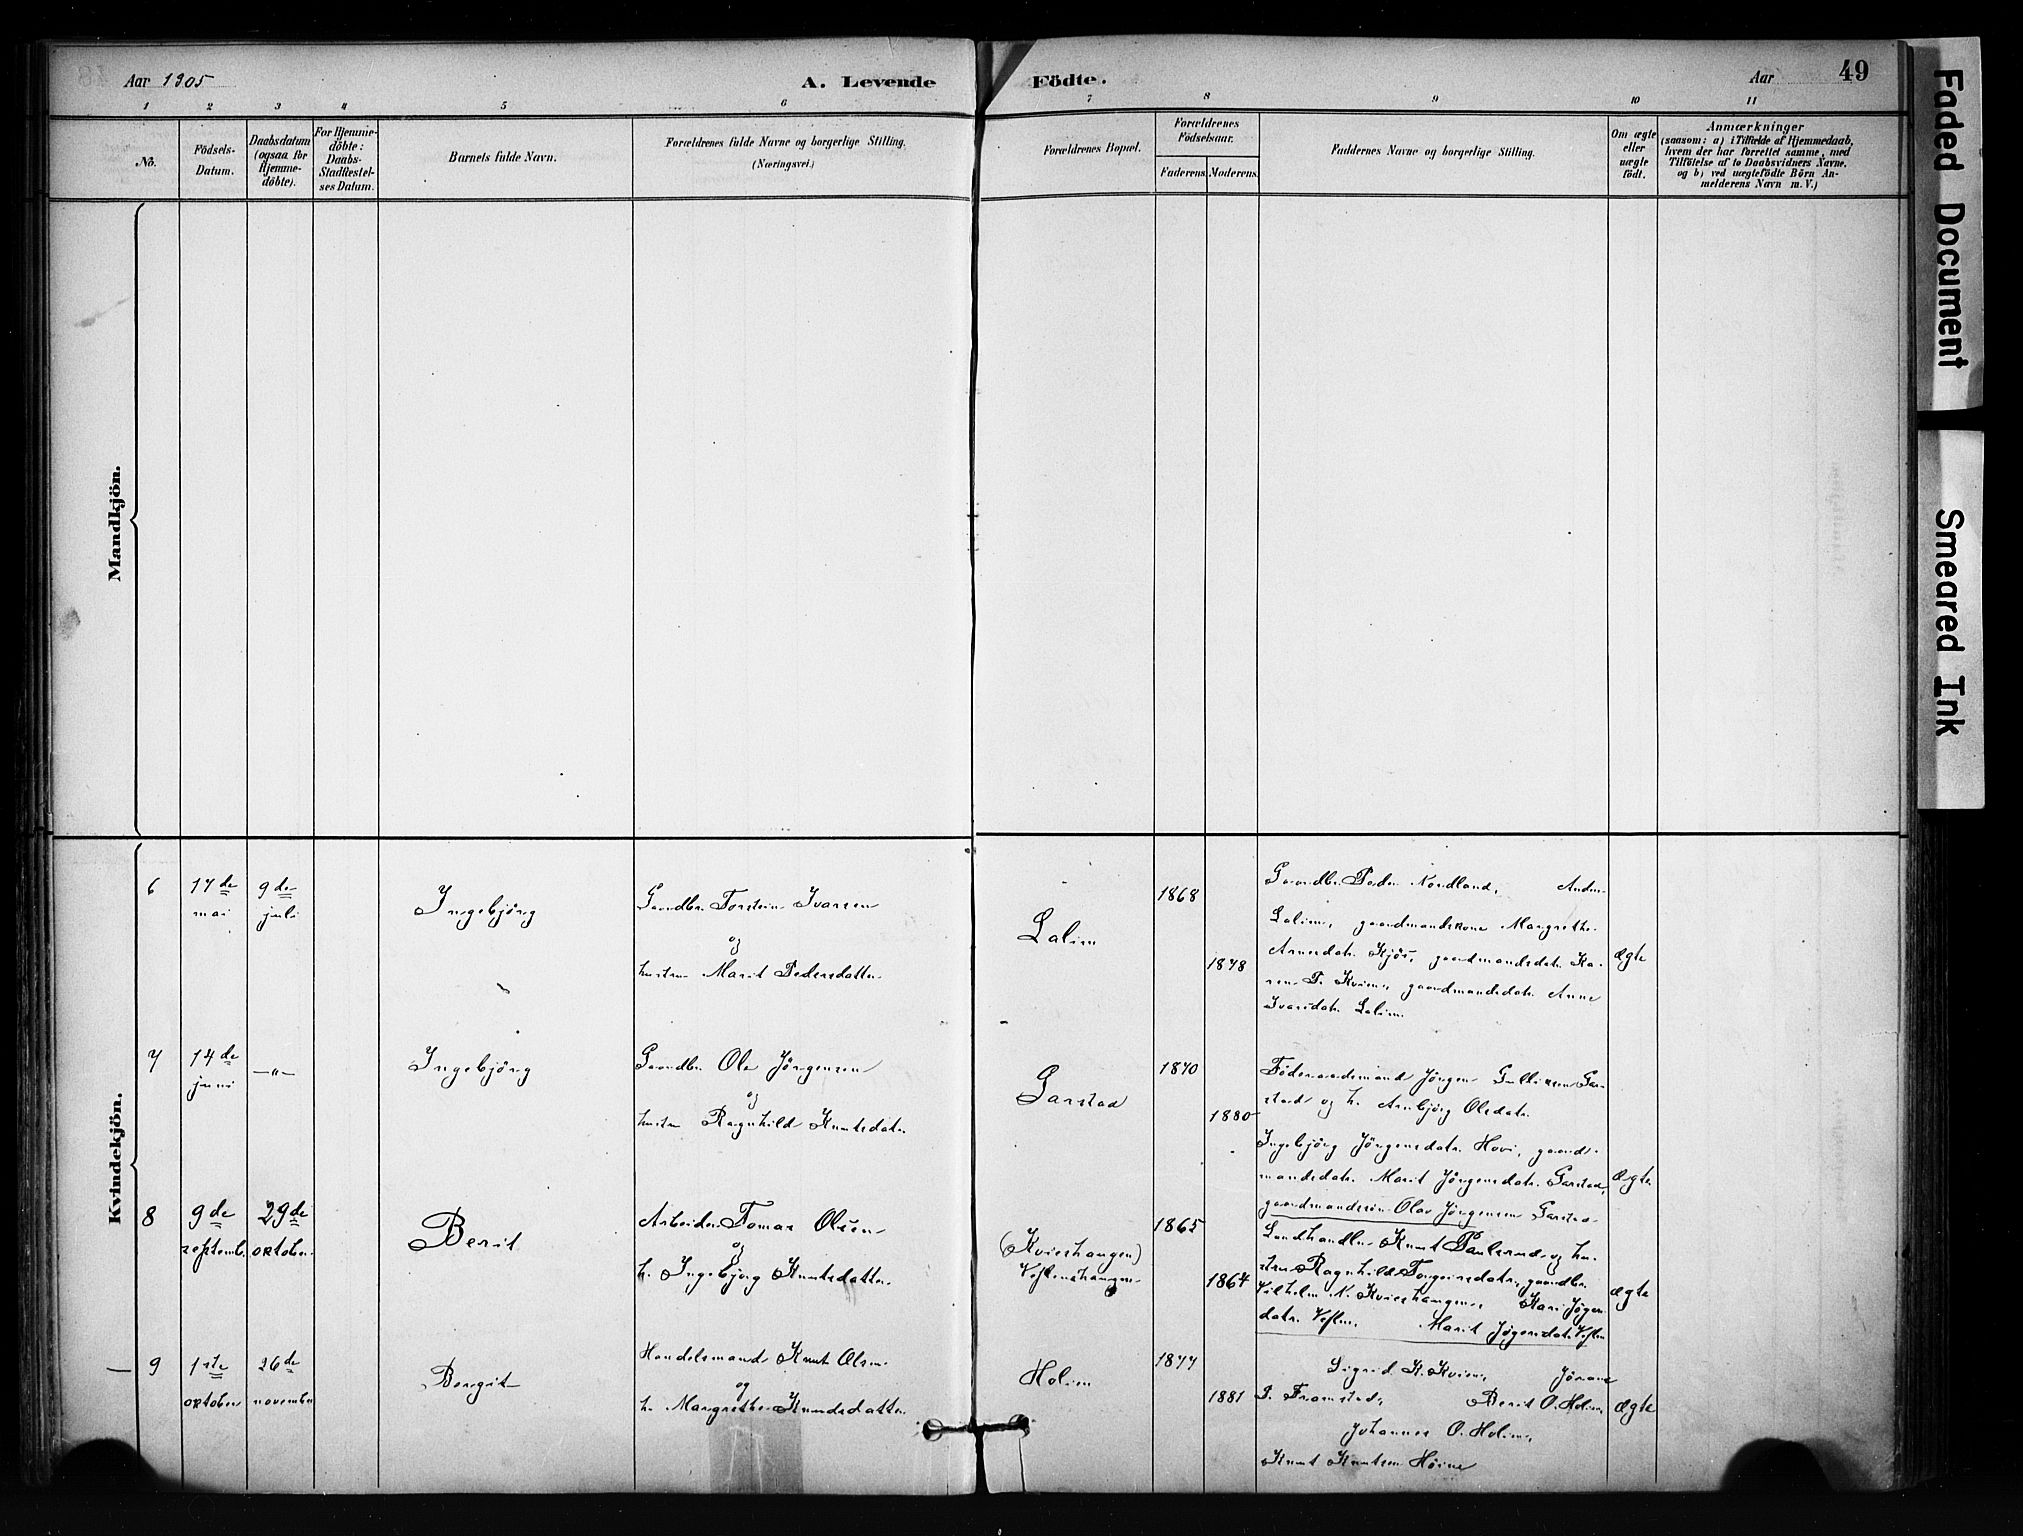 Aar 1905
A. Levende Födte.
Aar
49
1 2 3 4 5 6 7 8 9 10 11
No.
Födsels-Datum.
Daabsdatum (ogsaa for Hjemme-döbte).
For Hjemme-döbte: Daabs-Stadfestel-ses Datum.
Barnets fulde Navn.
Forældrenes fulde Navne og borgerlige Stilling.
(Næringsvei.)
Forældrenes Bopæl.
Forældrenes Födselsaar.
Faderens. Moderens.
Faddernes Navne og borgerlige Stilling.
Om ægte eller uægte födt.
Anmærkninger
(saasom: a) i Tilfælde af Hjemmedaab,
hvem der har forrettet samme, med
Tilföielse af to Daabsvidners Navne,
og b) ved uægtefödte Börn An-
melderens Navn m. V.)
Mandkjön.
Kvindekjön.
6 17de mai
9de juli
Ingebjörg
Gaardbr. Torstein Ivarsen
og
hustru Marit Pedersdatter
Lalim
1868
1878
Gaardbr. Peder Nordland,
Lalim, gaardmandskone Margrethe
Arnesdatr. Kjös, gaardmandsdatr. Ka-
ren P. Kvien, gaardmandsdatr. Anne
Ivarsdatr. Lalim.
ægte
7 14de juni
—"—
Ingebjörg
Gaardbr. Ole Jörgensen
og
hustru Ragnhild Knutsdatr.
Garstad
1870
1880
Föderaadsmand Jörgen Gulliksen Gar-
stad og h. Arnbjörg Olsdatr.
Ingebjörg Jörgensdatr. Hovi, gaard-
mandsdatr. Marit Jörgensdatr. Garstad,
gaardmandssön Olav Jörgensen Garstad
ægte
8 9de septemb.
29de oktober.
Berit
Arbeider Tomas Olsen
og
h. Ingebjörg Knutsdatter.
(Kvieshaugen)
1865
1864
Landhandler Knut Paulsrud og hu-
stru Ragnhild
Vilhelm N. Kvieshaugen, Kari
datr. Marit
ægte
9 1ste oktober
26de november
Bergit
Handelsmand Knut Olsen
og
h. Margrethe Knudsdatter.
Holien
1877
1881
Sigrid K. Kvien, Jörand
P. Framstad, Berit O. Holien,
Johannes O. Holien,
Knut Knutsen Höine
ægte
Faded Document
Smeared Ink